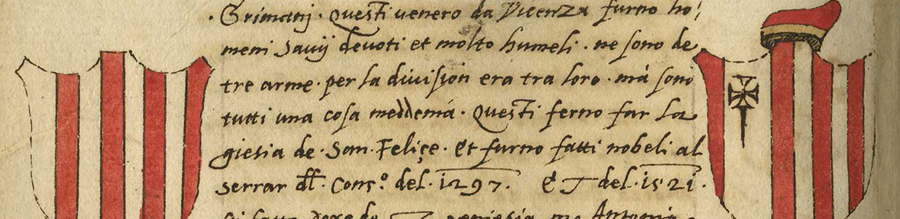 · Grimanj · Questi venero da Vicenza furno ho⁊
meni Savij devoti et molto humeli · ne sono de
tre arme · per la division era tra loro · mà sono
tutti una cosa meddemá · Questi ferno far la
giesia de · San · Feliçe · Et furno fatti nobeli al
serrar dƚƚ · Cons.º del · 1297 · E T del · 1521 ·
Antonio